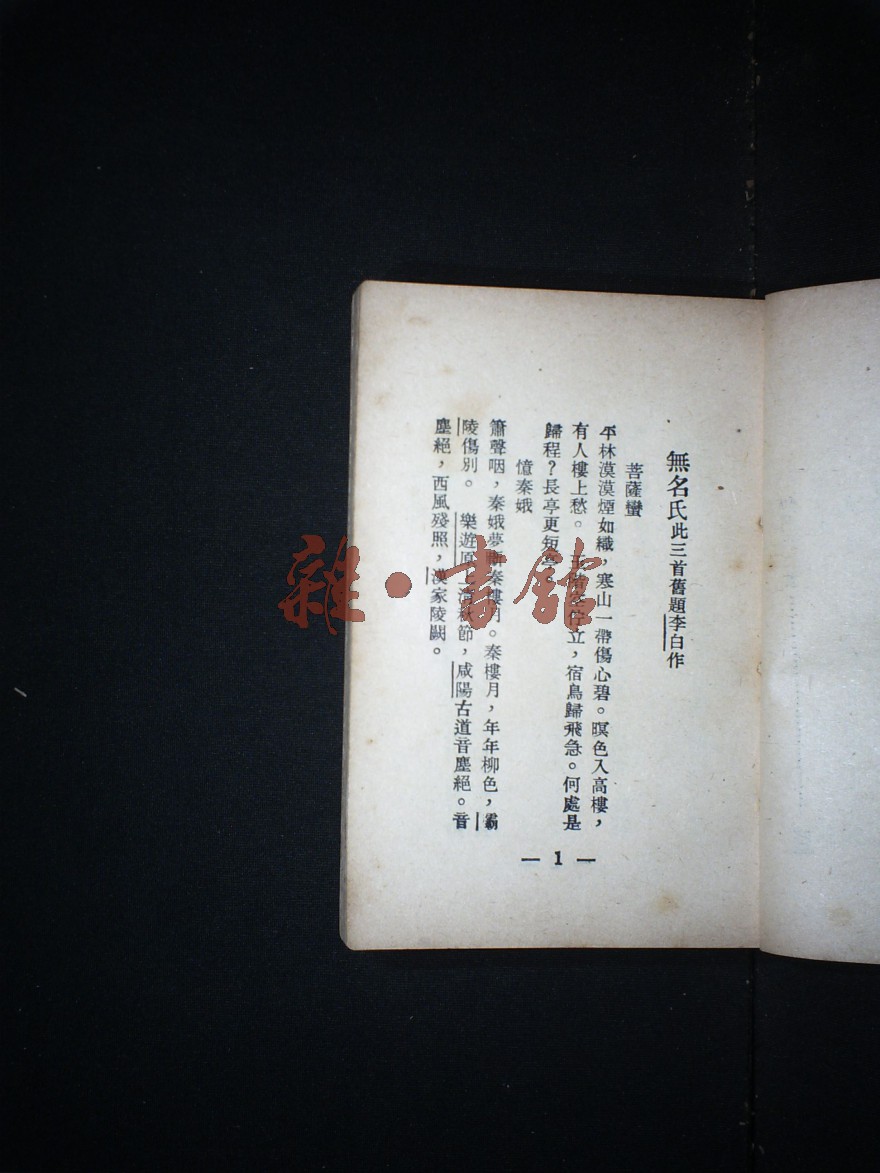 無名氏此三首舊題李白作
菩薩蠻
平林漠漠煙如織，寒山一帶傷心碧。暝色入高樓，
有人樓上愁。 玉階空佇立，宿鳥歸飛急。何處是
歸程？長亭更短亭。
憶秦娥
簫聲咽，秦娥夢斷秦樓月。秦樓月，年年柳色，霸
陵傷別。 樂遊原上清秋節，咸陽古道音塵絕。音
塵絕，西風殘照，漢家陵闕。
— 1 —
雜·書館